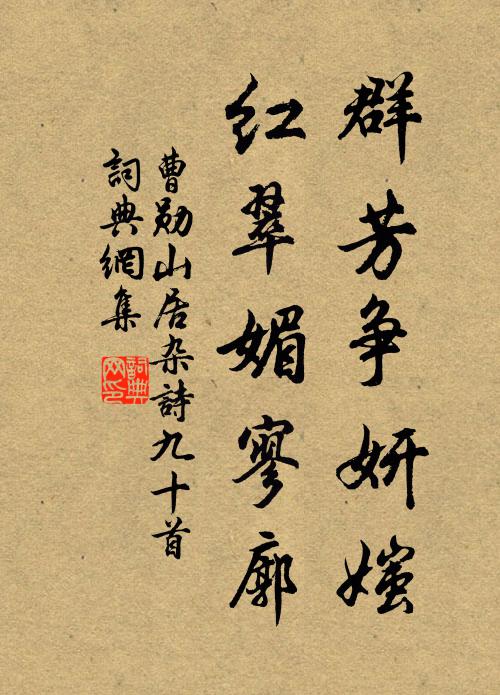 群芳争妍媸
红翠媚寥廓
曹勋山居杂詩九十首
詞典網集
詞典網印